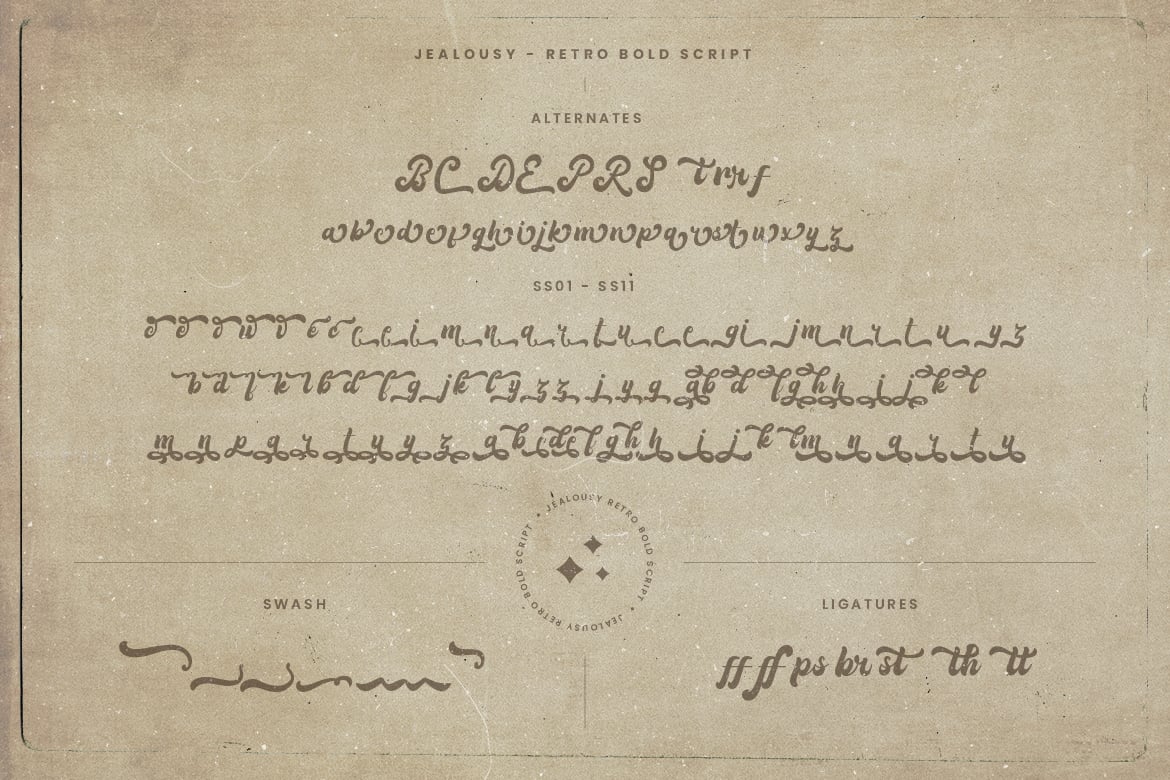 JEALOUSY - RETRO BOLD SCRIPT
ALTERNATES
B C D E P R S T r r r f
a b c d e f g h i j k m n p q r s t u x y z
SS01 - SS11
o o w v c c c e i m n a r t u c e g i j m n r t u y z
b d l k l b d l g j k l y z z j y g g b d l g h h i j k l
m n p q r t u y y z a b i d c l g h h i j k l m n a r t u
JEALOUSY RETRO BOLD SCRIPT • JEALOUSY RETRO BOLD SCRIPT •
SWASH
LIGATURES
ff ff ps br st th tt